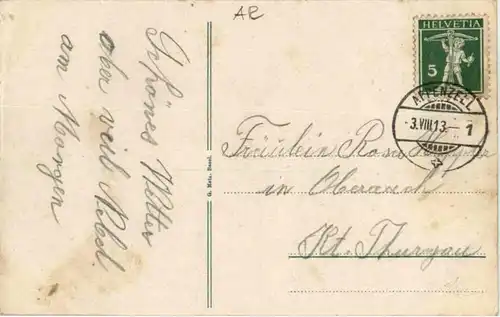 AR
Schönes Wetter
aber viel Nebel
am Morgen
G. Metz, Basel.
HELVETIA
5
APPENZELL
-3.VIII.13.- 1
Fräulein Rosa
in Oberaach
Kt. Thurgau